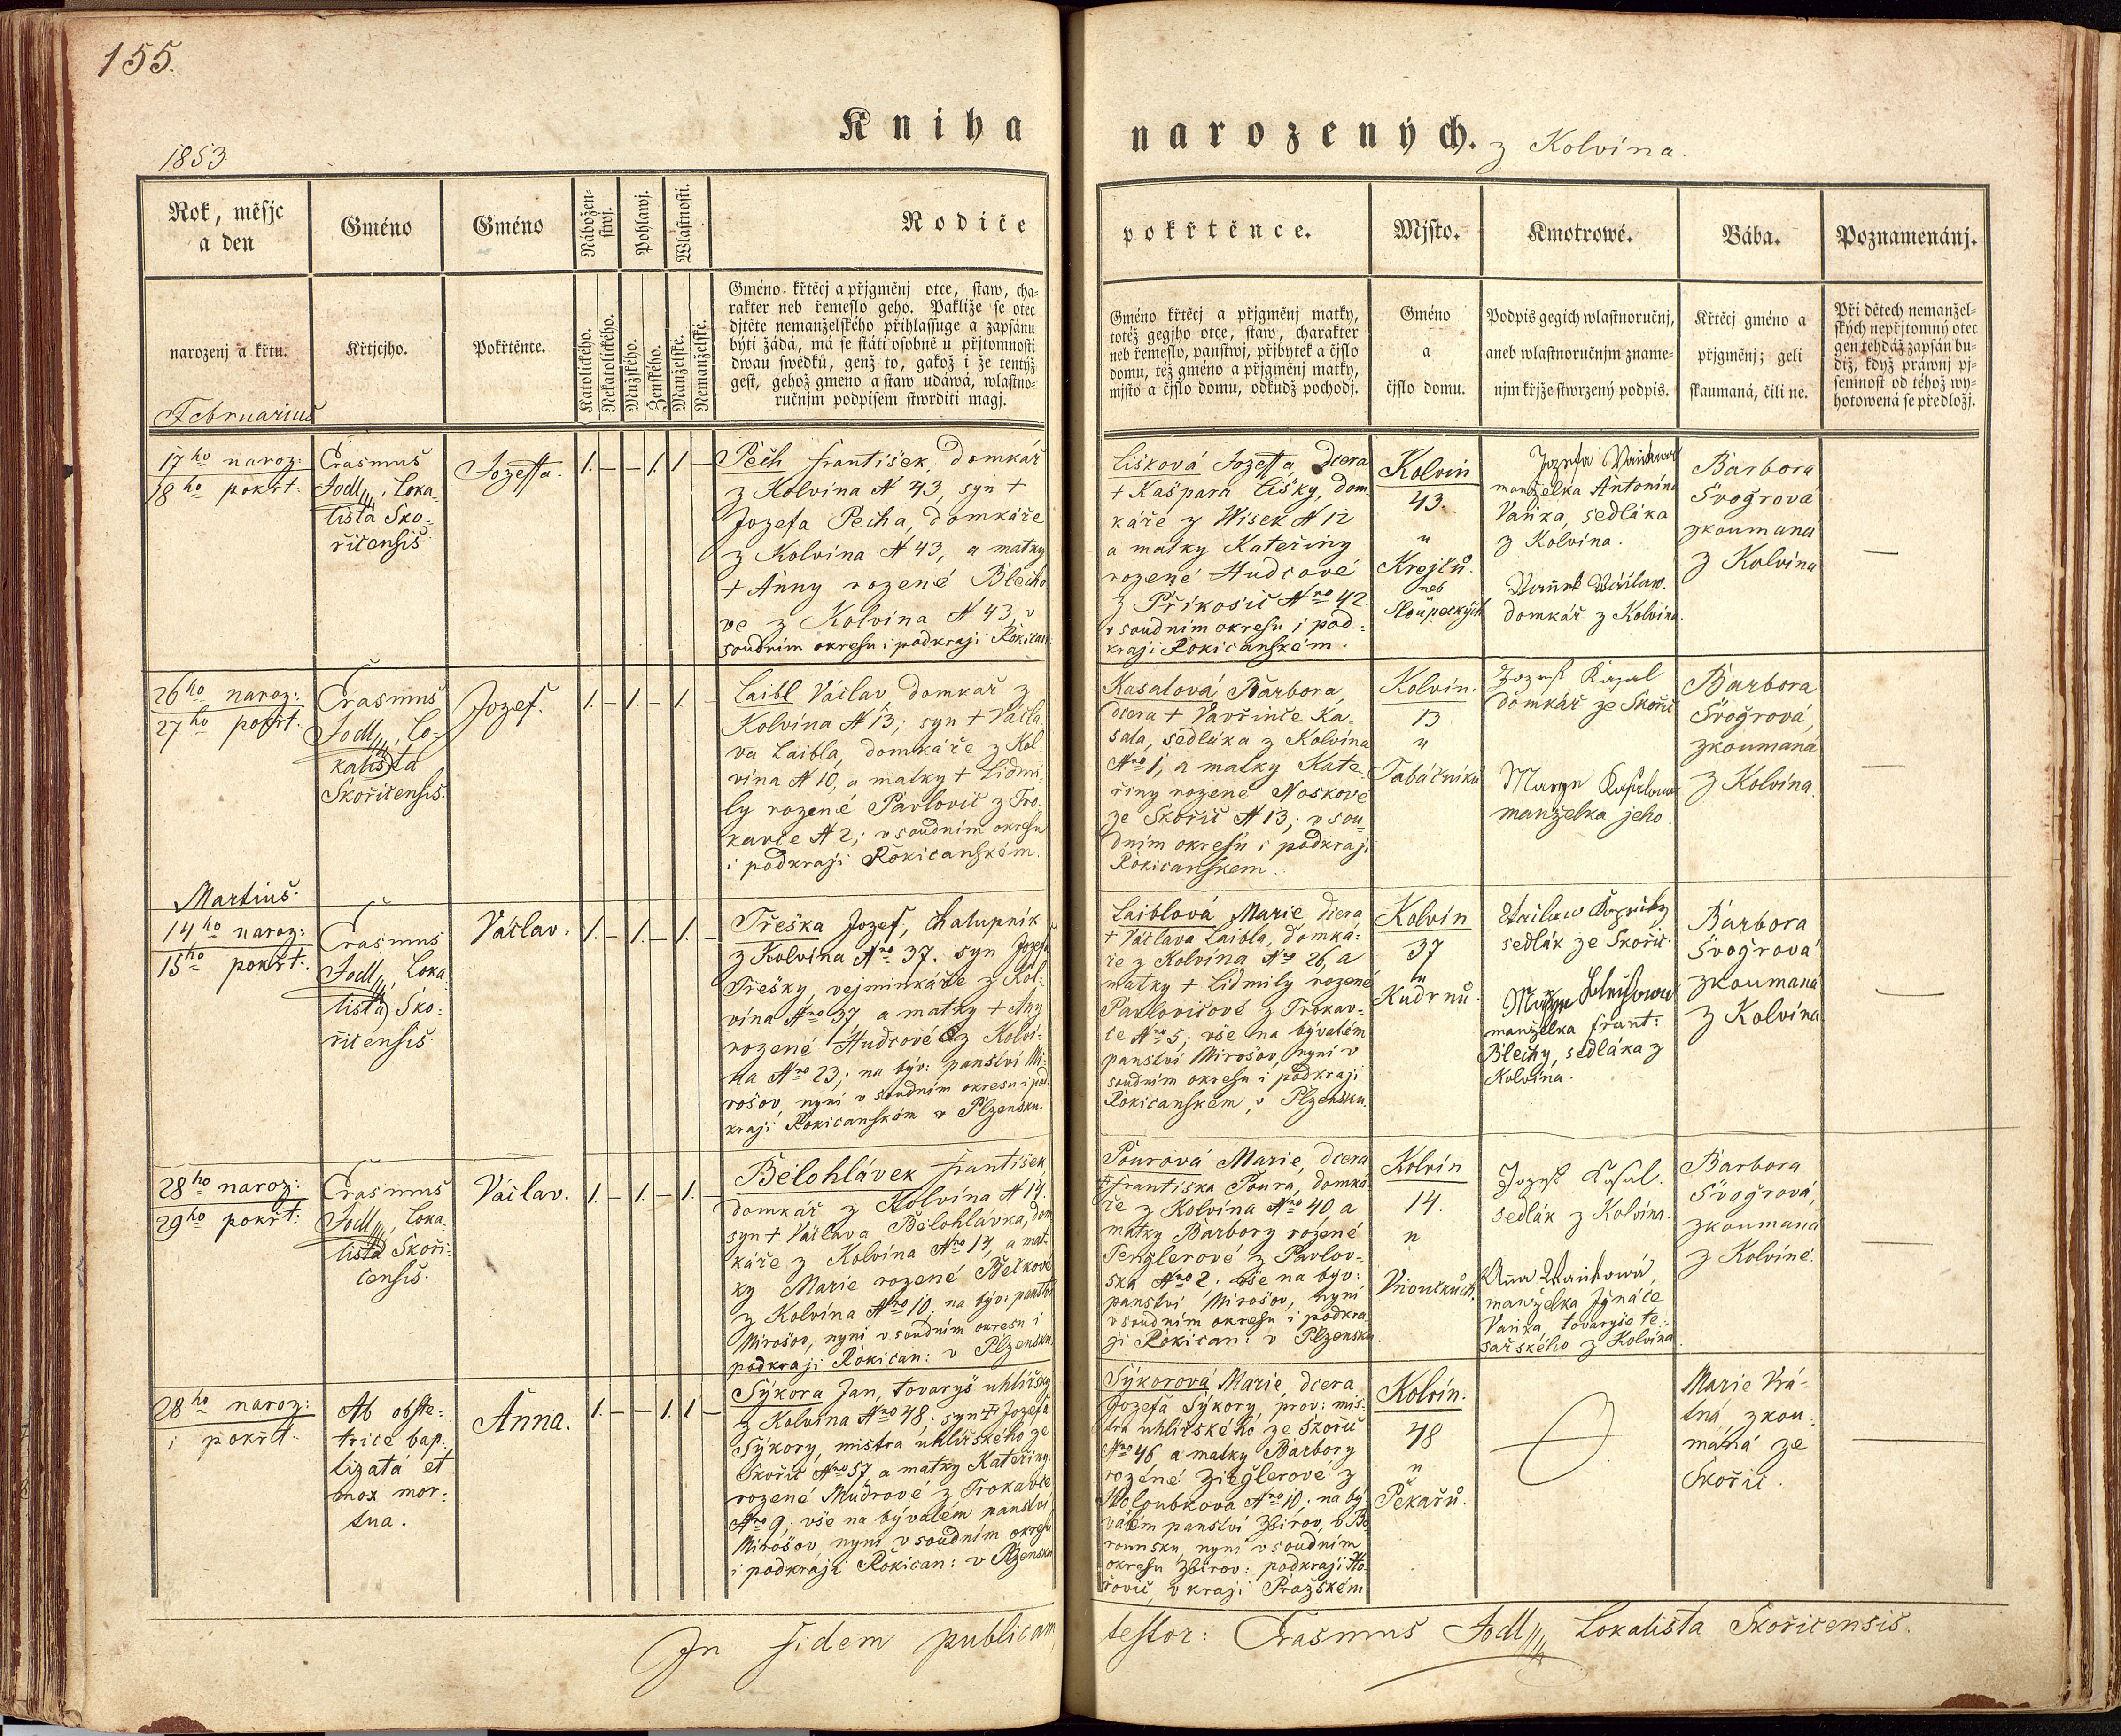 155.
Kniha narozených. z Kolvína.
1853
Rok, měsjc
a den
Gméno
Gméno
Nábožen-
stwj.
Pohlawj.
Wlastnosti.
Rodiče
pokřtěnce.
Mjsto.
Kmotrowé.
Bába.
Poznamenánj.
narozenj a křtu.
Křtjcjho.
Pokřtěnte.
Katolického.
Nekatolického.
Mužského.
Ženského.
Manželské.
Nemanželské.
Gméno křtěcj a přjgměnj otce, staw, cha-
rakter neb řemeslo geho. Pakliže se otec
djtěte nemanželského přihlassuge a zapsánu
býti žádá, má se státi osobně u přjtomnosti
dwau swědků, genž to, gakož i že tentýž
gest, gehož gmeno a staw udáwá, wlastno-
ručnjm podpisem stwrditi magj.
Gméno křtěcj a přjgměnj matky,
totéž gegjho otce, staw, charakter
neb řemeslo, panstwj, přjbytek a čjslo
domu, též gméno a přjgměnj matky,
mjsto a čjslo domu, odkudž pochodj.
Gméno
a
čjslo domu.
Podpis gegich wlastnoručnj,
aneb wlastnoručnjm zname-
njm křjže stwrzený podpis.
Křtěcj gméno a
přjgměnj; geli
skaumaná, čili ne.
Při dětech nemanžel-
ských nepřjtomný otec
gen tehdáž zapsán bu-
diž, když práwnj pj-
semnost od téhož wy-
hotowená se předložj.
Februarius
17ho naroz:
18ho pokřt:
Erasmus
Jodl, Loka-
lista Sko-
řicensis
Jozeffa.
1. — — 1. 1 —
Pech František, domkář
z Kolvína N 43, syn +
Jozefa Pecha, domkáře
z Kolvína N 43, a matky
+ Anny rozené Blecho
ve z Kolvína N 43, v
soudním okresu i podkraji Rokican:
Lišková Jozeffa, dcera
+ Kašpara Lišky, dom-
káře z Wísek N 12
a matky Kateřiny
rozené Hudcové
z Příkosic Nro 42
v soudním okresu i pod-
kraji Rokicanském.
Kolvín
43.
u
Krejčů
neb
Sloupeckých
Jozefa
manželka Antonína
Vaňka, sedláka
z Kolvína.
Václaw.
domkář z Kolvína.
Barbora
Švogrová
zkoumaná
z Kolvína
—
26ho naroz:
27ho pokřt:
Erasmus
Jodl, Lo-
kalista
Skořicensis.
Jozef.
1. — 1. — 1. —
Laibl Václav, domkář z
Kolvína N 13; syn + Václa
va Laibla, domkáře z Kol-
vína N 10, a matky + Lidmi-
ly rozené Pavlovic z Tro-
kavce N 2; v soudním okresu
i podkraji Rokicanském.
Kasalová Barbora,
dcera + Vavřince Ka-
sala, sedláka z Kolvína
Nro 1, a matky Kate-
řiny rozené Noskové
ze Skořic N 13; v sou-
dním okresu i podkraji
Rokicanskem.
Kolvín.
13
u
Tabáčníků
Jozef Kasal
domkář ze Skořic
Marye Kasalowa
manželka jeho.
Barbora
Švogrová,
zkoumaná
z Kolvína.
—
Martius.
14ho naroz:
15ho pokřt:
Erasmus
Jodl, Loka
lista Sko-
řicensis
Václav.
1. — 1. — 1. —
Třeška Jozef, chalupník
z Kolvína Nro 37. syn Jozefa
Třešky, vejminkáře z Kol-
vína Nro 37 a matky + Anny
rozené Hudcové z Kolví-
na Nro 23; na býv: panství Mi-
rošov, nyní v soudním okresu i pod-
kraji Rokicanském v Plzensku.
Laiblová Marie dcera
+ Václava Laibla, domká-
ře z Kolvína Nro 26, a
matky + Lidmily rozené
Pavlovicové z Trokav-
ce Nro 5; vše na bývalém
panství Mirošov, nyní v
soudním okresu i podkraji
Rokicanském, v Plzensku.
Kolvín
37
u
Kudrnů.
sedlák ze Skořic.
manželka Frant:
Blechy, sedláka z
Kolvína.
Barbora
Švogrová
zkoumaná
z Kolvína
—
28ho naroz:
29ho pokřt:
Erasmus
Jodl, Loka
lista Skoři-
censis.
Václav.
1. — 1. — 1. —
Bělohlávek František,
domkář z Kolvína N 14.
syn + Václava Bělohlávka, dom
káře z Kolvína Nro 14, a mat-
ky Marie rozené
z Kolvína Nro 10. na býv: panství
Mirošov, nyní v soudním okresu i
podkraji Rokican: v Plzensku.
Pourová Marie, dcera
+ Františka Poura, domká-
ře z Kolvína Nro 40 a
matky Barbory rozené
Tenglerové z Pavlov-
ska Nro 2. vše na býv:
panství Mirošov, nyní
v soudním okresu i podkra
ji Rokican: v Plzensku.
Kolvín
14.
u
Jozef Kasal.
sedlák z Kolvína.
Anna Wankowá,
manželka Ignáce
Vaňka, tovaryše te-
sařského z Kolvína.
Barbora
Švogrová,
zkoumaná
z Kolvíné.
—
28ho naroz:
i pokřt.
Ab obste-
trice bap-
tizata et
mox mor-
tua.
Anna.
1. — — 1. 1 —
Sýkora Jan, tovaryš uhlířský
z Kolvína Nro 48; syn + Jozefa
Sýkory, mistra uhlířského ze
Skořic Nro 57, a matky Kateřiny
rozené Mudrové z Trokavce
Nro 9; vše na bývalém panství
Mirošov, nyní v soudním okresu
i podkraji Rokican: v Plzensku
Sýkorová Marie, dcera
Jozefa Sýkory, prov: mis-
tra uhlířského ze Skořic
Nro 46 a matky Barbory
rozené Zieglerové z
Holoubkova Nro 10; na bý-
valém panství Zbirov, v Be
rounsku nyní v soudním
okresu Zbirov: podkraji Ho-
řovic, v kraji Pražském
Kolvín.
48
u
Pekařů.
Marie Vrá-
tná, zkou-
maná ze
Skořic.
—
In fidem publicam testor: Erasmus Jodl, Lokalista Skořicensis.